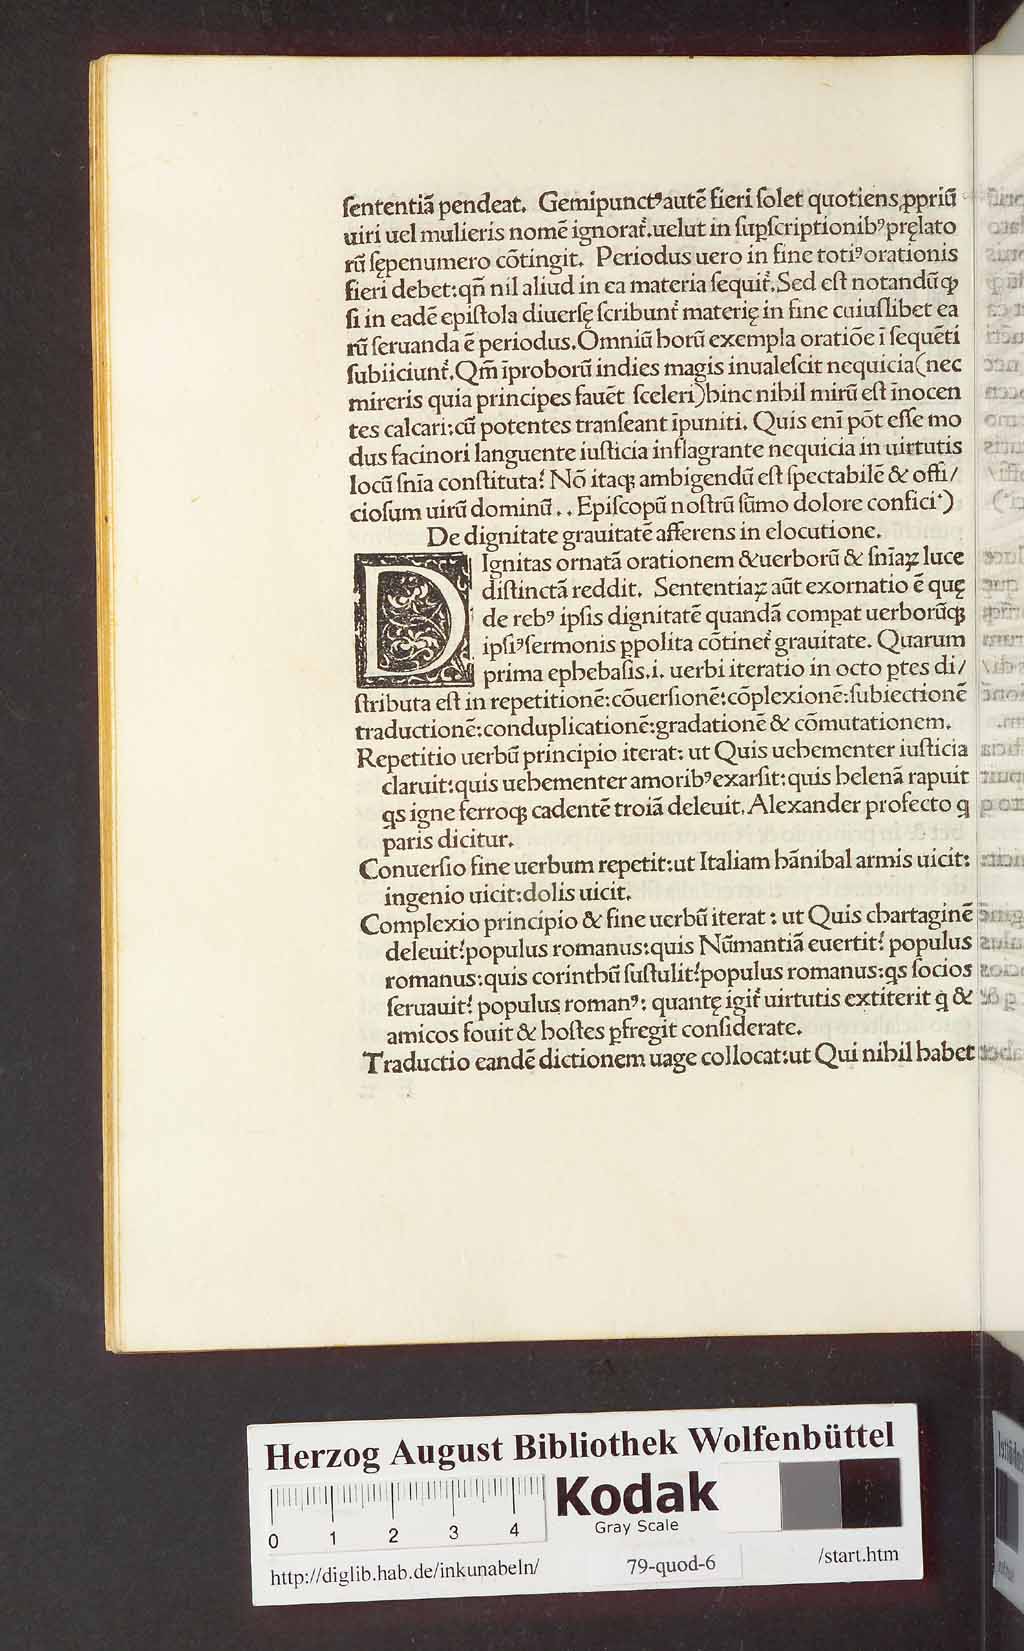 ſententiā pendeat. Gemipunctꝰ autē fieri ſolet quotiens ꝓpriū
uiri uel mulieris nomē ignorat᷑.uelut in ſuꝑſcriptionibꝰ pręlato
rū ſępenumero cōtingit. Periodus uero in fine totiꝰ orationis
fieri debet:qn̄ nil aliud in ea materia ſequit᷑.Sed eſt notandū ꝙ
ſi in eadē epiſtola diuerſę ſcribunt᷑ materię in fine cuiuſlibet ea
rū ſeruanda ē periodus.Omniū horū exempla oratiōe ī ſequēti
ſubiiciunt᷑.Qm̄ īproborū indies magis inualeſcit nequicia(nec
mireris quia principes fauēt ſceleri)hinc nihil mirū eſt īnocen
tes calcari:cū potentes tranſeant īpuniti. Quis enī pōt eſſe mo
dus facinori languente iuſticia inflagrante nequicia in uirtutis
locū ſn̄ia conſtituta? Nō itaqꝫ ambigendū eſt ſpectabilē & offi/
cioſum uirū dominū . . Epiſcopū noſtrū ſūmo dolore confici·)
De dignitate grauitatē afferens in elocutione.
DIgnitas ornatā orationem & uerborū & ſn̄iaꝝ luce
diſtinctā reddit. Sententiaꝝ aūt exornatio ē quę
de rebꝰ ipſis dignitatē quandā compat uerborūqꝫ
ipſiꝰ ſermonis ꝑpolita cōtinet᷑ grauitate. Quarum
prima ephebaſis.i. uerbi iteratio in octo ꝑtes di/
ſtributa eſt in repetitionē:cōuerſionē:cōplexionē:ſubiectionē
traductionē:conduplicationē:gradationē & cōmutationem.
Repetitio uerbū principio iterat: ut Quis uehementer iuſticia
claruit:quis uehementer amoribꝰ exarſit:quis helenā rapuit
qs igne ferroqꝫ cadentē troiā deleuit.Alexander profecto q
paris dicitur.
Conuerſio fine uerbum repetit:ut Italiam hānibal armis uicit:
ingenio uicit:dolis uicit.
Complexio principio & fine uerbū iterat : ut Quis chartaginē
deleuit?populus romanus:quis Nūmantiā euertit? populus
romanus:quis corinthū ſuſtulit?populus romanus:qs ſocios
ſeruauit? populus romanꝰ: quantę igit᷑ uirtutis extiterit q &
amicos fouit & hoſtes ꝑfregit conſiderate.
Traductio eandē dictionem uage collocat:ut Qui nihil habet
Herzog August Bibliothek Wolfenbüttel
Kodak
Gray Scale
0 1 2 3 4
http://diglib.hab.de/inkunabeln/ 79-quod-6 /start.htm